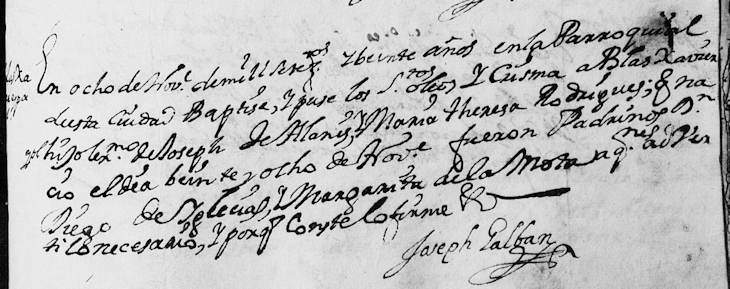 En ocho de Nove. de mill setezos. y beinte años en la Parroquial
desta Ciudad Baptise, y puse los Stos. oleos, y Crisma a Blas Xavier
español hijo lexmo. de Joseph de Alanis, y Maria theresa Rodrigues; q na
cio el dia beinte y ocho de Nove. fueron Padrinos Dn
Diego de Yglecias, y Margarita de la Mota a qnes adver
ti lo necesario, y porq conste lo firme
Joseph Galban